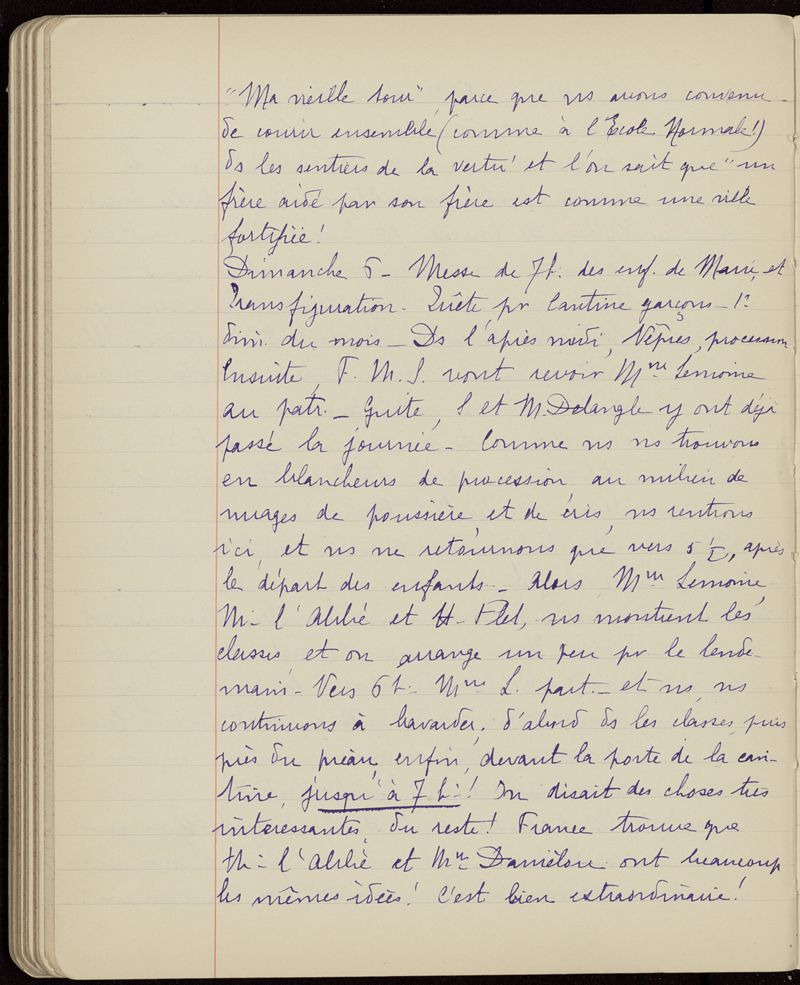 "Ma vieille sœur" parce que ns avons convenu
de courir ensemble (comme à l'Ecole Normale!)
ds les sentiers de la vertu et l'on sait que "un
frère aidé par son frère est comme une ville
fortifiée!
Dimanche 6 - Messe de 7h. des enf. de Marie, et
Transfiguration. Quête pr Cantine garçons - 1r
dim. du mois - Ds l'après midi, Vêpres, procession
Ensuite, F. M. S. vont revoir Mme Lemoine
au patr. - Guite, S et M. Delangle y ont déjà
passé la journée - Comme ns ns trouvons
en blancheurs de procession, au milieu de
nuages de poussière et de cris, ns rentrons
ici, et ns ne retournons que vers 5 1/2, après
le départ des enfants - Alors, Mme Lemoine,
M- l'Abbé et H- Flet, ns montrent les
classes, et on arrange un peu pr le lende-
main - Vers 6h- Mme L. part - et ns, ns
continuons à bavarder, d'abord ds les classes, puis
près du préau, enfin, devant la porte de la can-
tine, jusqu'à 7h-! On disait des choses très
intéressantes, du reste! France trouve que
M- l'Abbé et Mme ont beaucoup
les mêmes idées! C'est bien extraordinaire!